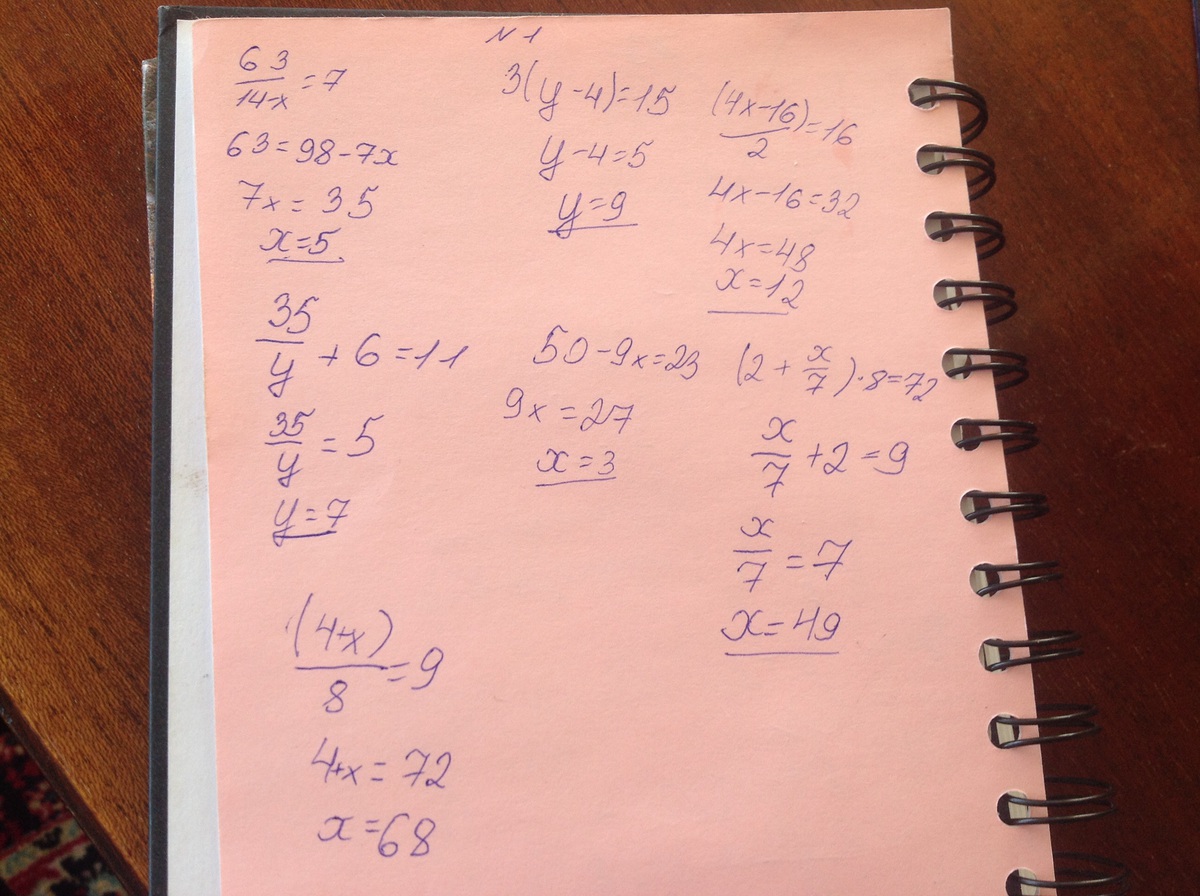 N 1
63/(14-x) = 7
63 = 98 - 7x
7x = 35
x = 5
3(y - 4) = 15
y - 4 = 5
y = 9
(4x - 16)/2 = 16
4x - 16 = 32
4x = 48
x = 12
35/y + 6 = 11
35/y = 5
y = 7
50 - 9x = 23
9x = 27
x = 3
(2 + x/7) · 8 = 72
x/7 + 2 = 9
x/7 = 7
x = 49
(4+x)/8 = 9
4+x = 72
x = 68